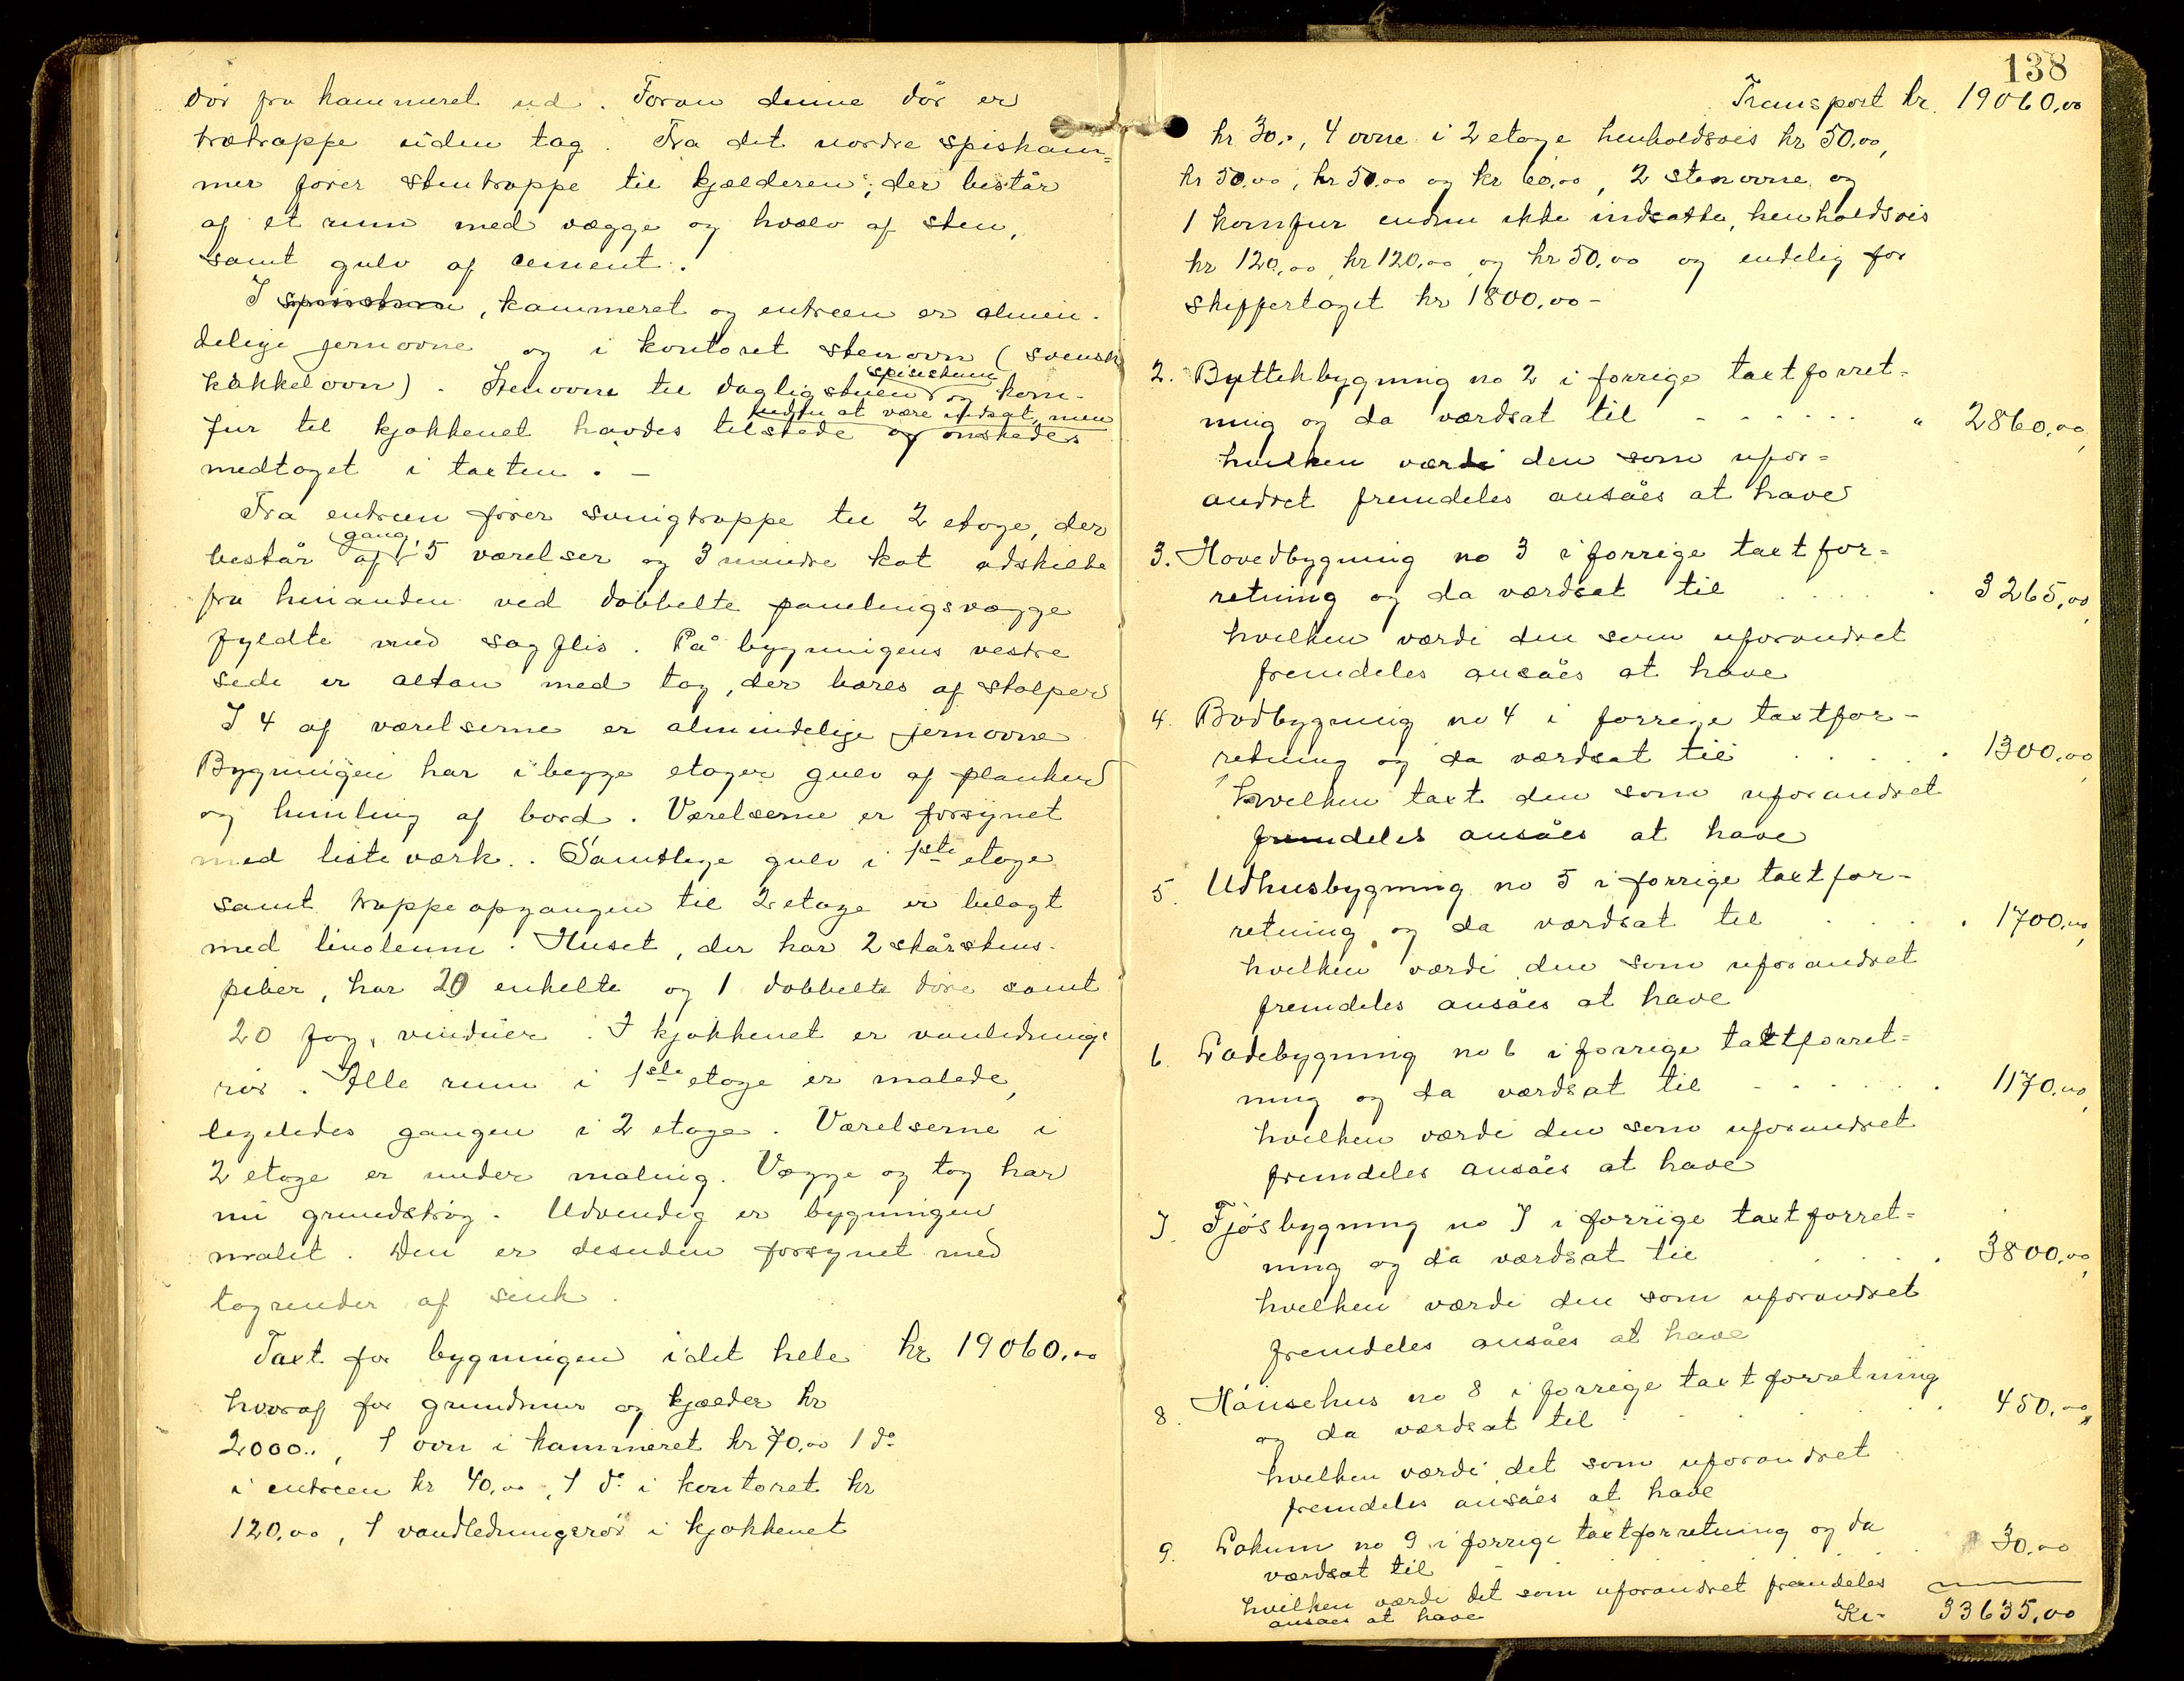 dör fra kammeret ud. Foran denne dör er
trætrappe uden tag. Fra det nordre spiskam=
mer förer stentrappe til kjælderen, der består
af et rum med vægge og hvælv af sten,
samt gulv af cement.
I spisestuen, kammeret og entreen er almin-
delige jernovne og i kontoret stenovn (svensk
kakkelovn). Stenovne til dagligstuen og kom-
spisestuen
fur til kjökkenet havdes tilstede og önskedes
endnu at være indsat, men
medtaget i taxten. -
Fra entreen förer svingtrappe til 2 etage, der
består af 5 værelser og 3 mindre kot adskilte
gang,
fra hinanden ved dobbelte panelingsvægge
fyldte med sagflis. På bygningens vestre
side er altan med tag, der bæres af stolper
I 4 af værelserne er almindelige jernovne
Bygningen har i begge etager gulv af planker
og himling af bord. Værelserne er forsynet
med listeværk. Samtlige gulv i 1ste etage
samt trappeopgangen til 2 etage er belagt
med linoleum. Huset, der har 2 skårstens-
piber, har 20 enkelte og 1 dobbelte döre samt
20 fag vinduer. I kjökkenet er vanledning-
rör. Alle rum i 1ste etage er malede,
ligeledes gangen i 2 etage. Værelserne i
2 etage er under maling. Vægge og tag har
nu grundströg. Udvendig er bygningen
malet. Den er desuden forsynet med
tagrender af sink.
Taxt for bygningen i det hele kr 19060,00
hvoraf for grundmur og kjælder kr
2000.., 1 ovn i kammeret kr 70,00 1 do
i entreen kr 40,00, 1 do i kontoret kr
120,00, 1 vandledningsrör i kjökkenet
138
Transport kr. 19060,00
kr 30.., 4 ovne i 2 etage henholdsvis kr 50,00,
kr 50,00, kr 50,00 og kr 60,00, 2 stenovne og
1 komfur endnu ikke indsatte, henholdsvis
kr 120,00, kr 120,00 og kr 50,00 og endelig for
skiffertaget kr 1800,00-
2. Byttekbygning no 2 i forrige taxtforret=
ning og da værdsat til - - - - - - " 2860,00,
hvilken værdi den som ufor=
andret fremdeles ansåes at have
3. Hovedbygning no 3 i forrige taxtfor=
retning og da værdsat til . . . . . 3265,00,
hvilken værdi den som uforandret
fremdeles ansåes at have
4. Bodbygning no 4 i forrige taxtfor-
retning og da værdsat til . . . . . 1300,00,
hvilken taxt den som uforandret
fremdeles ansåes at have
5. Udhusbygning no 5 i forrige taxtfor-
retning og da værdsat til . . . . 1700,00,
hvilken værdi den som uforandret
fremdeles ansåes at have
6. Ladebygning no 6 i forrige taxtforret=
ning og da værdsat til - - . . . . 1170,00,
hvilken værdi den som uforandret
fremdeles ansåes at have
7. Fjösbygning no 7 i forrige taxtforret=
ning og da værdsat til . . . . 3800,00,
hvilken værdi den som uforandret
fremdeles ansåes at have
8. Hönsehus no 8 i forrige taxtforretning
og da værdsat til . . . . . . 450,00,
hvilken værdi det som uforandret
fremdeles ansåes at have
9. Lokum no 9 i forrige taxtforretning og da
værdsat til - . . . . . 30,00
hvilken værdi det som uforandret fremdeles
ansaes at have Kr- 33635,00